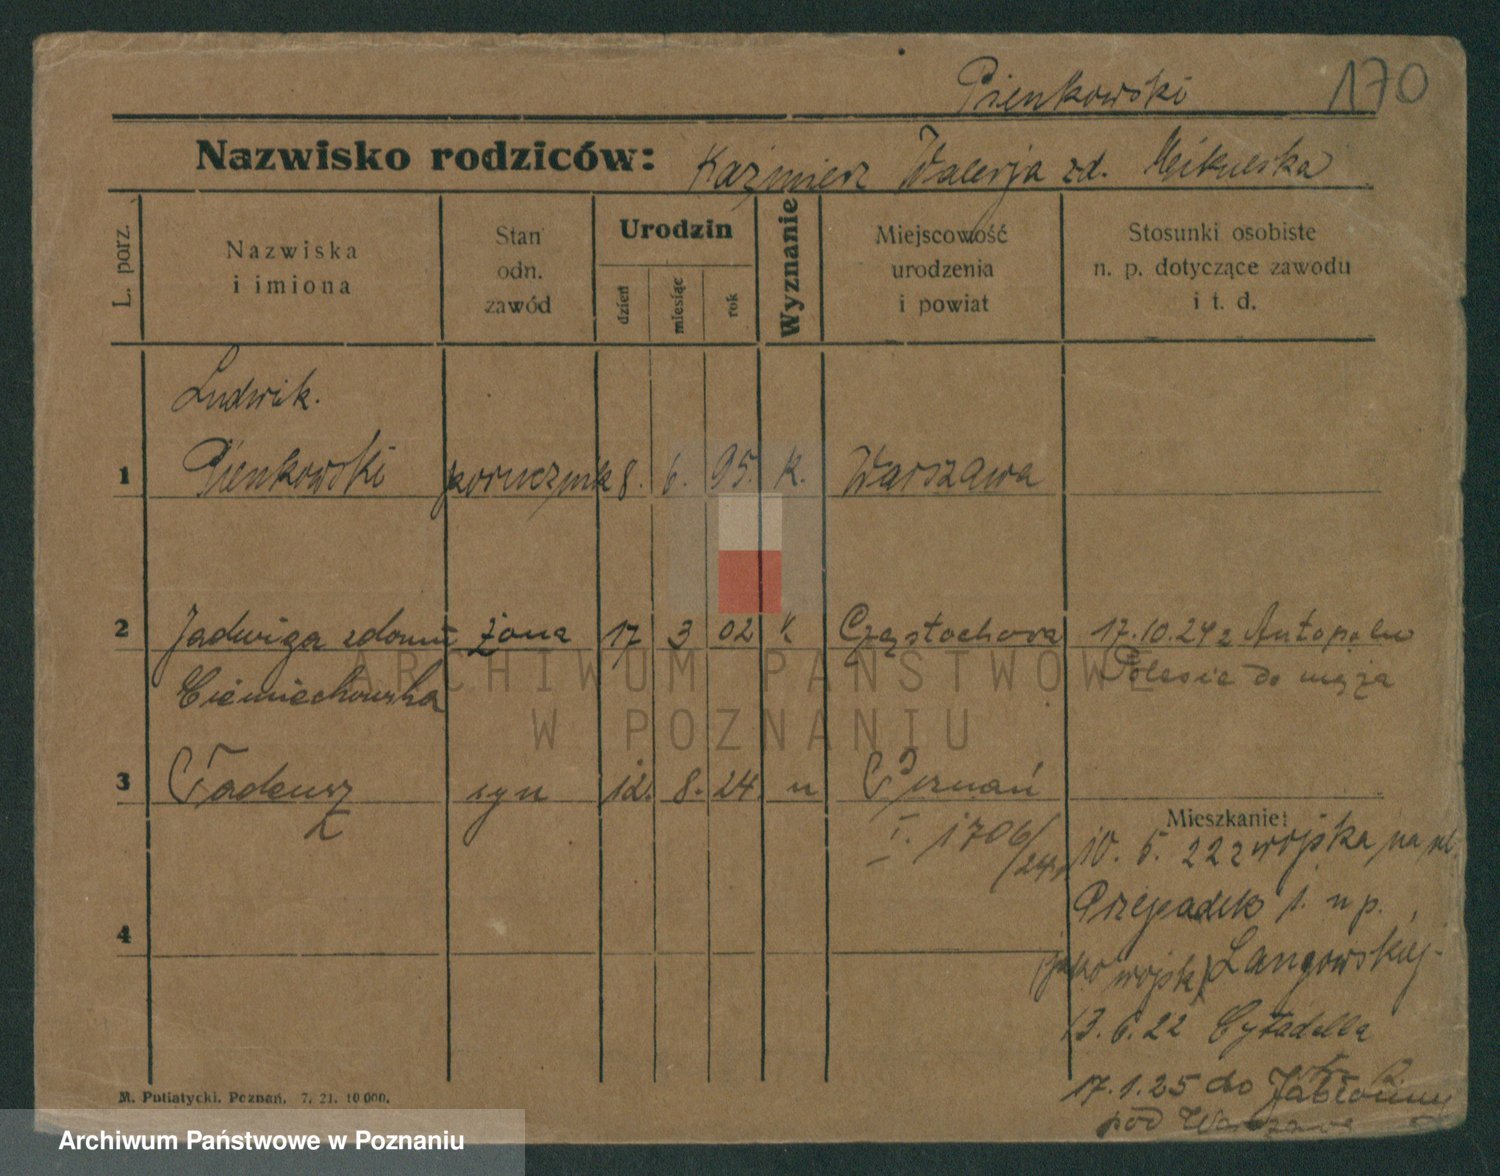 Pienkowski 170
Nazwisko rodziców: Kaźmierz Walerja zd.
L. porz.
Nazwiska
i imiona
Stan
odn.
zawód
Urodzin
dzień
miesiąc
rok
Wyznanie
Miejscowość
urodzenia
i powiat
Stosunki osobiste
n. p. dotyczące zawodu
i t. d.
Ludwik.
1 Pienkowski porucznik 8. 6. 95. k. Warszawa
2 Jadwiga żona 17 3 02 k. Częstochowa 17.10.24 z Antopolu
Ciemiechowska Polesie do męża
3 Tadeusz syn 12. 8. 24. Poznań
I. 1706/
/24
Mieszkanie:
10. 5. 22 z wojska na ul.
Przepadek 1. n p.
4
(jako wojsk) Langowskiej-
13. 6. 22 Cytadella
17.1.25 do Jabłonny
pod Warszawą
M. Putiatycki, Poznań. 7. 21. 10 000.
ARCHIWUM PAŃSTWOWE
W POZNANIU
Archiwum Państwowe w Poznaniu